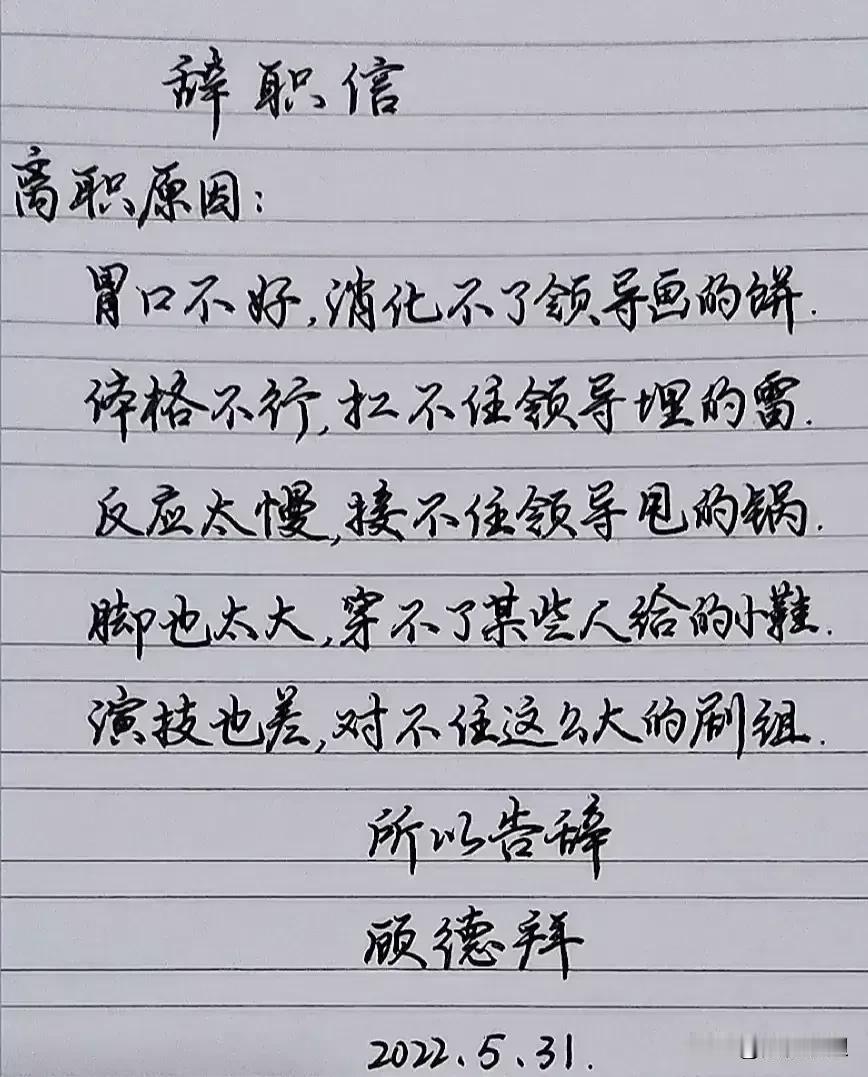 辞职信
离职原因:
胃口不好,消化不了领导画的饼.
体格不行,扛不住领导埋的雷.
反应太慢,接不住领导甩的锅.
脚也太大,穿不了某些人给的小鞋.
演技也差,对不住这么大的剧组.
所以告辞
顾德拜
2022.5.31.